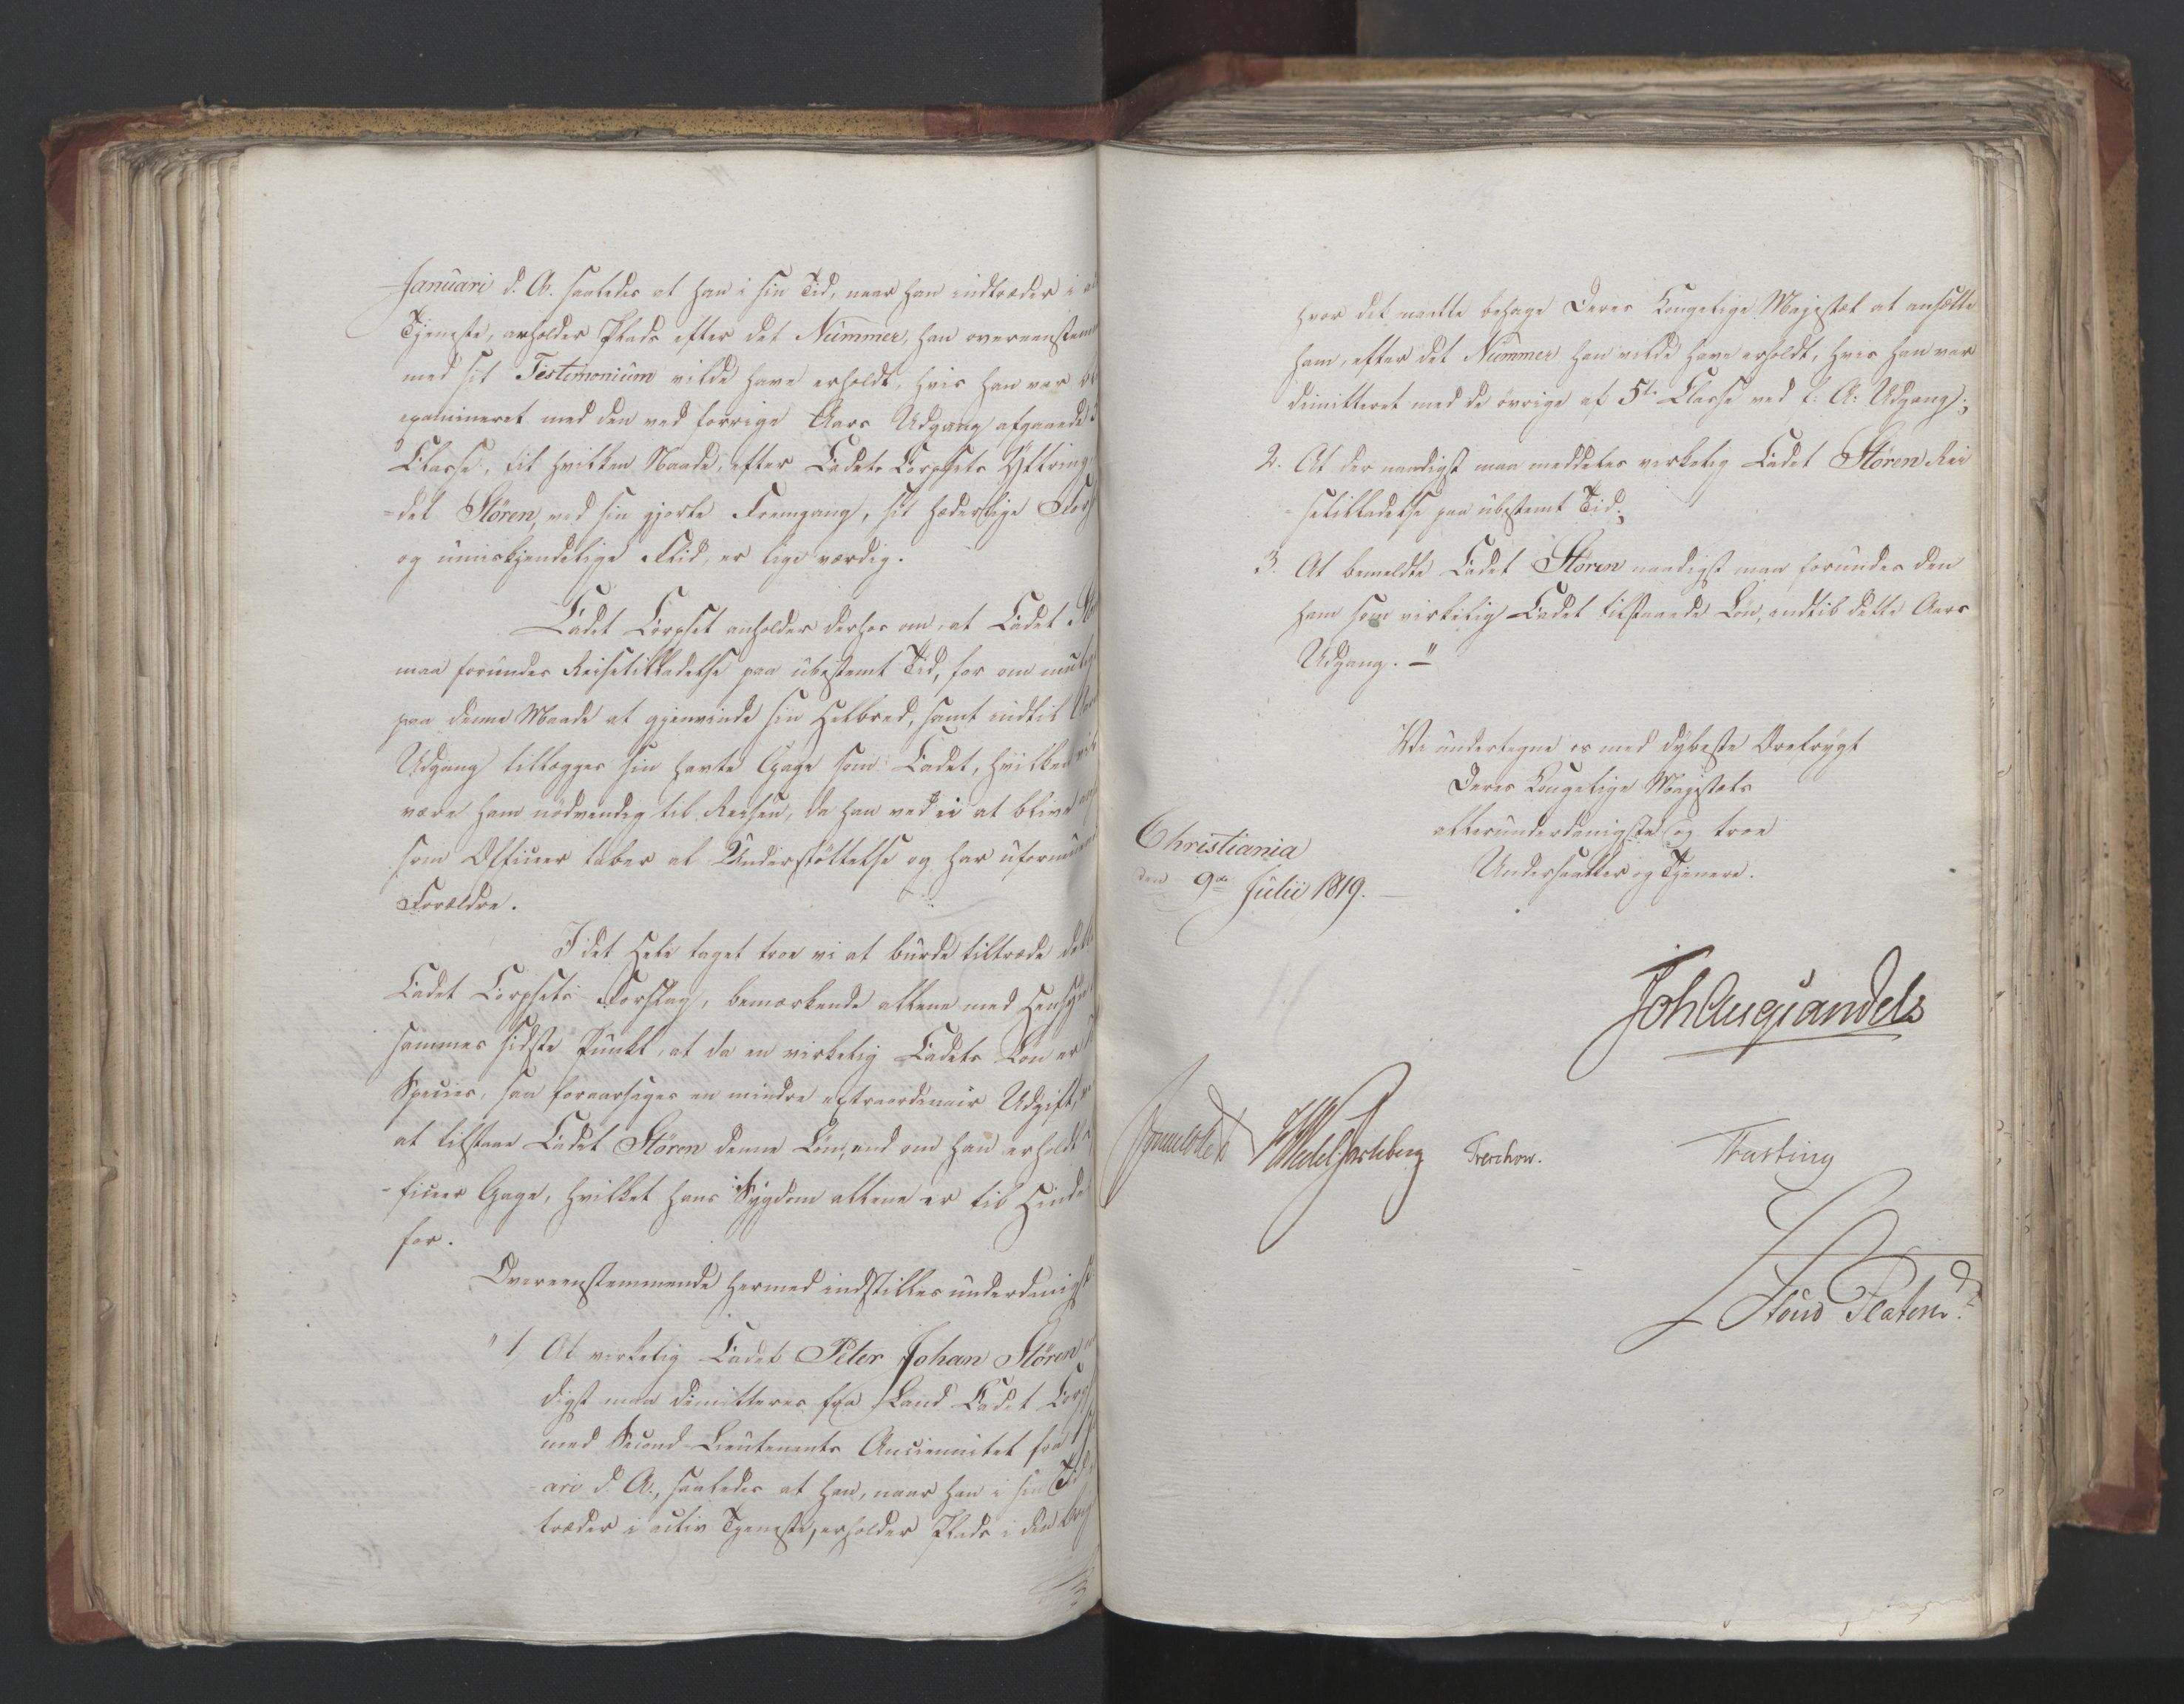 Januari d. A. saaledes at han i sin Tid, naar han indtræder i
Tjeneste, erholder Plads efter det Nummer, han
med sit Testimonium vilde have erholdt, hvis han var
examineret med den ved forrige Aars Udgang afgaaede
Classe, til hvilken Naade, efter Cadet Corpsets
det Stören, ved sin gjorte Fremgang, sit hæderlige
og umiskjendelige Flid, er lige værdig.
Cadet Corpset anholder derhos om, at Cadet
maa forundes Reisetilladelse paa ubestemt Tid, for om
paa denne Maade at gjenvinde sin Helbred, samt indtil
Udgang tillægges sin havte Gage som Cadet, hvilken
være ham nödvendig til Reisen, da han ved ei at blive
som Officer taber al Understöttelse og har
Forældre.
I det Hele taget troe vi at burde tiltræde
Cadet Corpsets Forslag, bemærkende allene med
sammes sidste Punkt, at da en virkelig Cadets Lön er
Species, saa foraarsages en mindre extraordinair Udgift,
at tilstaae Cadet Stören denne Lön, end om han erholdt
ficeer Gage, hvilket hans Sygdom allene er til
for.
Overeensstemmende hermed indstilles underdanigst
" 1 At virkelig Cadet Peter Johan Stören
digst maa dimitteres fra Land Cadet
med Second-Lieutenants Anciennitet fra
-ari d. A., saaledes at han, naar han i sin
træder i activ Tjeneste, erholder Plads i den
hvor det maatte behage Deres Kongelige Majestæt at ansætte
ham, efter det Nummer han vilde have erholdt, hvis han var
dimitteret med de övrige af 5te Classe ved f: A: Udgang;
2. At der naadigst maa meddeles virkelig Cadet Stören Rei
=setilladelse paa ubestemt Tid;
3. At bemeldte Cadet Stören naadigst maa forundes den
ham som virkelig Cadet tilstaaede Lön, indtil dette Aars
Udgang. "
Vi undertegne os med dybeste Ærefrygt
Deres Kongelige Majestæts
allerunderdanigste og troe
Undersaatter og Tjenere.
Christiania
den 9de Julii 1819.
Joh Aug Sandels
Sommerhielm
Wedel Jarlsberg
Treschow.
Fasting